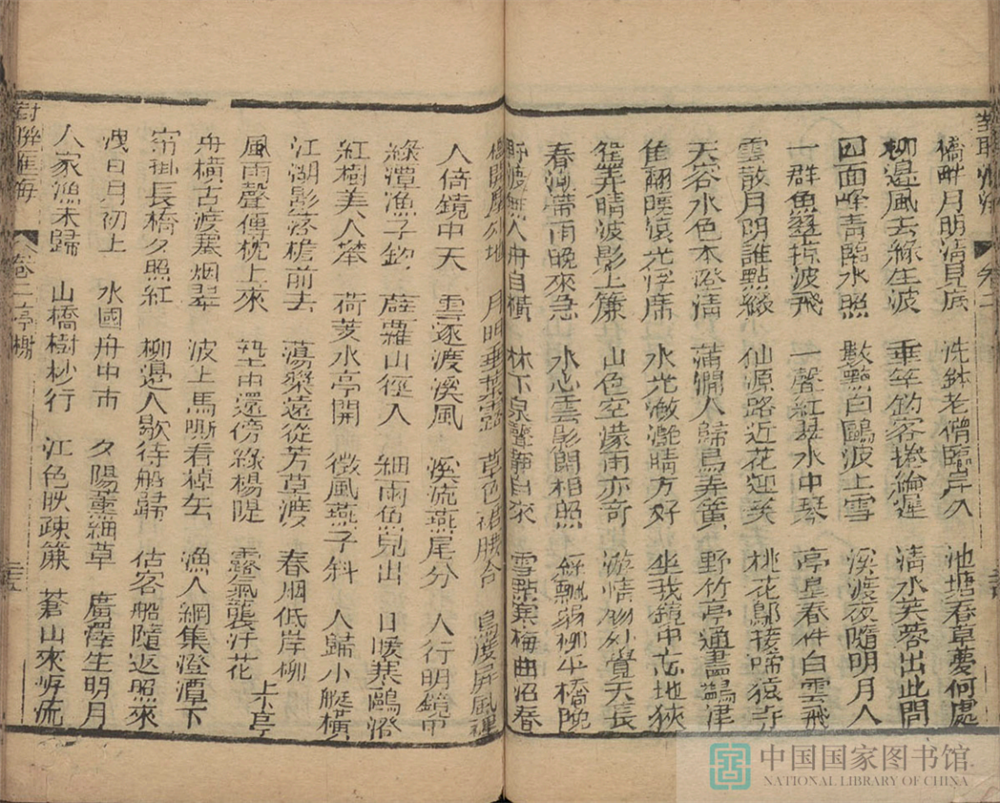 橋畔月明清見底 洗鉢老僧臨岸久 池塘春草夢何處
柳邊風去綠生波 垂竿釣客捲綸遲 清水芙蓉出此間
四面峰青臨水照 數點白鷗波上雪 溪渡夜隨明月人
一群魚躍掠波飛 一聲紅 水中琴 亭皐春伴白雲飛
雲散月明誰點綴 仙源路近花迎笑 桃花鄰接啼猿寺
天谷水色本澄清 蒲澗人歸鳥弄簧 野竹亭通畫鷁津
魚翻 光浮席 水光瀲灧晴方好 坐我鏡中忘地狹
鴛弄晴波影上簾 山色空濛雨亦奇 游情物外覺天長
春潮帶雨晚來急 水心雲影閒相照 飄弱柳平橋晚
野渡無人舟自橫 林下泉聲靜自來 雪點寒梅曲沼春
月明垂葉露 草色 合 鳥度屏風裡
人倚鏡中天 雲逐渡溪風 溪流燕尾分 人行明鏡中
綠潭漁子釣 薜蘿山徑入 細雨魚兒出 日暖寒鷗浴
紅樹美人 荷芰水亭開 微風燕子斜 人歸小艇橫
江湖影落檐前去 蕩槳遠從芳草渡 春烟低岸柳
風雨聲傳枕上來 墊巾還傍綠楊隄 露氣襲汀花
舟橫古渡寒烟翠 波上馬嘶看棹去 漁人網集澄潭下 卡亭
帘掛長橋夕照紅 柳邊人歇待船歸 估客船隨返照來
洩日月初上 水國舟中市 夕陽薰細草 廣澤生明月
人家漁未歸 山橋樹杪行 江色映疎簾 蒼山來 流
對聯匯海 卷二亭榭